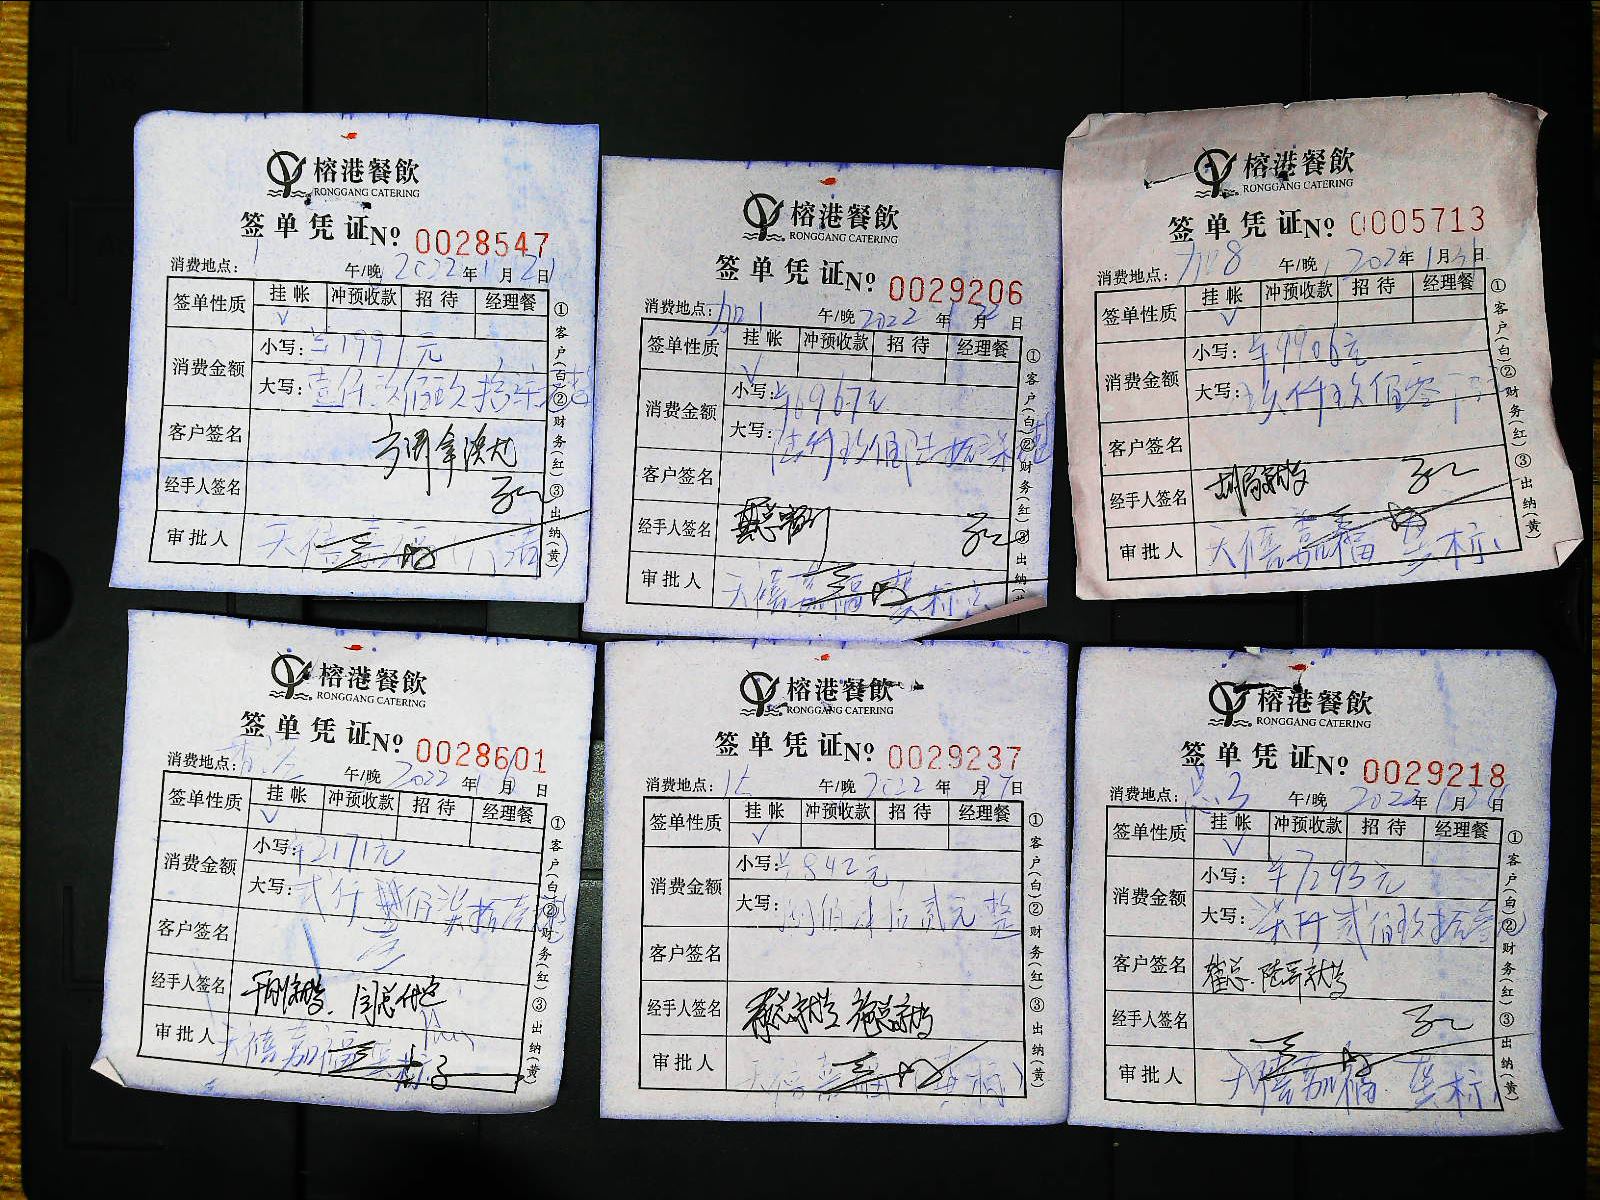 榕港餐飲
RONGGANG CATERING
签单凭证№ 0028547
消费地点: 1 午/晚 2022年1月21日
签单性质 挂帐 冲预收款 招待 经理餐
√
消费金额 小写: ¥1991元
大写: 壹仟玖佰玖拾元整
客户签名
经手人签名
审批人 天禧嘉福
①客户(白)②财务(红)③出纳(黄)
榕港餐飲
RONGGANG CATERING
签单凭证№ 0029206
消费地点: 加1 午/晚 2022年1月22日
签单性质 挂帐 冲预收款 招待 经理餐
√
消费金额 小写: ¥6967元
大写: 陆仟玖佰陆拾柒元整
客户签名
经手人签名
审批人 天禧嘉福
①客户(白)②财务(红)③出纳(黄)
榕港餐飲
RONGGANG CATERING
签单凭证№ 0005713
消费地点: 加8 午/晚 202年1月31日
签单性质 挂帐 冲预收款 招待 经理餐
√
消费金额 小写: ¥9906元
大写: 玖仟玖佰零
客户签名
经手人签名
审批人 天禧嘉福
①客户(白)②财务(红)③出纳(黄)
榕港餐飲
RONGGANG CATERING
签单凭证№ 0028601
消费地点: 午/晚 2022年1月日
签单性质 挂帐 冲预收款 招待 经理餐
√
消费金额 小写: ¥2171元
大写: 贰仟壹佰柒拾壹
客户签名
经手人签名
审批人 天禧嘉福
①客户(白)②财务(红)③出纳(黄)
榕港餐飲
RONGGANG CATERING
签单凭证№ 0029237
消费地点: 午/晚 2022年月日
签单性质 挂帐 冲预收款 招待 经理餐
√
消费金额 小写: ¥842元
大写: 捌佰肆拾贰元整
客户签名
经手人签名
审批人 天禧嘉福
①客户(白)②财务(红)③出纳(黄)
榕港餐飲
RONGGANG CATERING
签单凭证№ 0029218
消费地点: 午/晚 2022年1月日
签单性质 挂帐 冲预收款 招待 经理餐
√
消费金额 小写: ¥7293元
大写: 柒仟贰佰玖拾叁
客户签名
经手人签名
审批人 天禧嘉福
①客户(白)②财务(红)③出纳(黄)